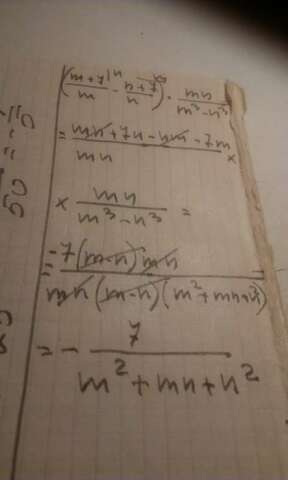 ((m+7)^n/m - (n+7)^m/n) · mn/(m³-n³)
= (mn+7n-nm-7m)/mn ×
× mn/(m³-n³) =
= -7(m-n)mn/(mn(m-n)(m²+mn+n²))
= - 7/(m²+mn+n²)